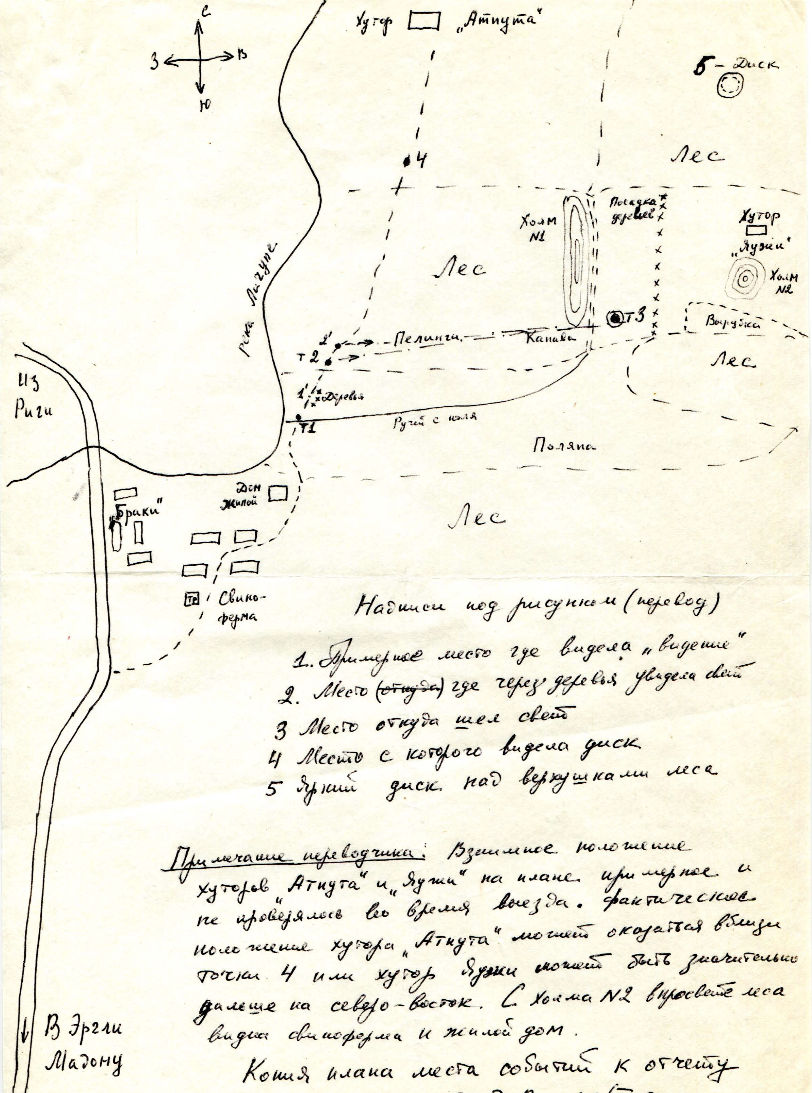 С
З
В
Ю
Хутор „Аткута“
5 - Диск
4
Лес
Холм
№1
Посадка
деревьев
Хутор
„Яужи“
Холм
№2
Лес
река Личупе
2'
Пелинги
Канава
Т3
Вырубка
Т2
Лес
1'
Деревья
Т1
Ручей с поля
Из
Риги
Поляна
„Брики“
Дом
жилой
Лес
ТП
Свино-
ферма
Надписи под рисунком (перевод)
1. Примерное место где видела „видение“
2. Место (откуда) где через деревья увидела свет
3 Место откуда шел свет
4 Место с которого видела диск
5 Яркий диск над верхушками леса
Примечание переводчика: Взаимное положение
хуторов „Аткута“ и „Яужи“ на плане примерное и
не проверялось во время выезда. Фактическое
положение хутора „Аткута“ может оказаться вблизи
точки 4 или хутор Яужи может быть значительно
дальше на северо-восток. С холма №2 в просвете леса
видна свиноферма и жилой дом.
В Эргли
Мадону
Копия плана места событий к отчету